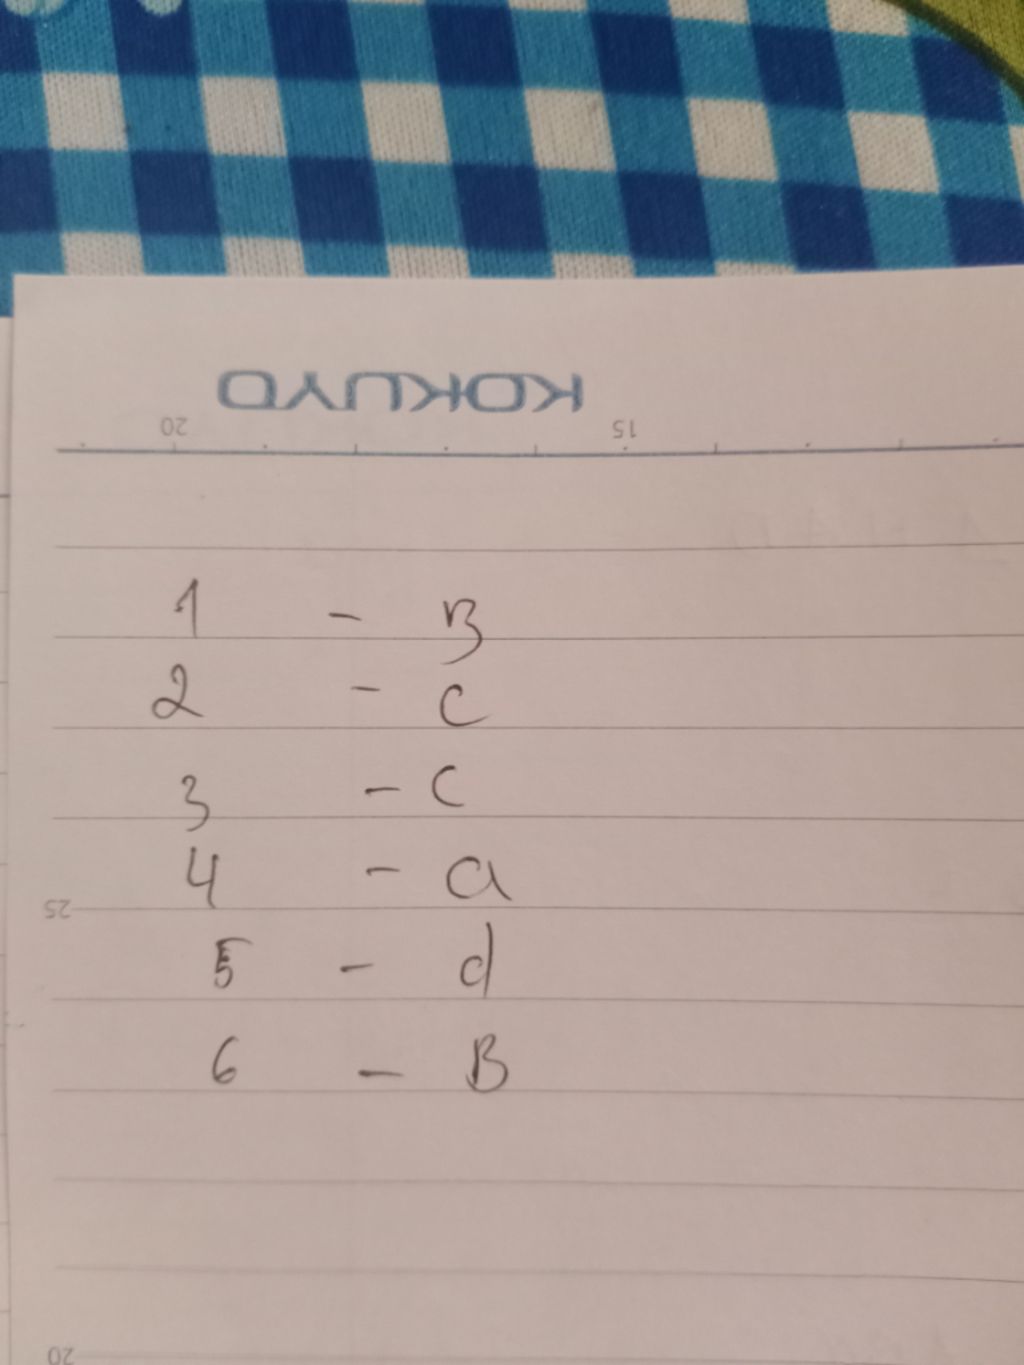 KOKUYO
20 15
1 - B
2 - C
3 - C
4 - a
25
5 - d
6 - B
20